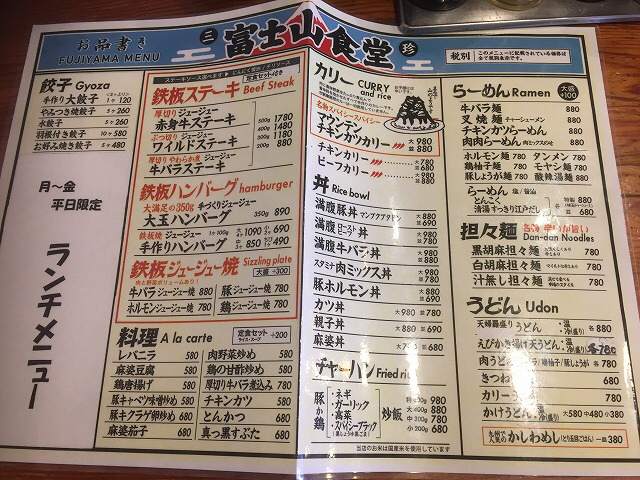 お品書き
FUJIYAMA MENU
三 富士山食堂 珍
税別
このメニューに記載されている価格は全て税別表示です。
餃子 Gyoza
手作り大餃子 1ヶ 120
やみつき焼餃子 5ヶ 260
水餃子 5ヶ 260
羽根付き餃子 10ヶ 580
お好み焼き餃子 5ヶ 480
月～金
平日限定
ランチメニュー
定食セット付き
鉄板ステーキ Beef Steak
厚切り ジュージュー
赤身牛ステーキ
500g 1780
400g 1480
ぶつ切り ジュージュー
ワイルドステーキ
300g 1180
200g 880
厚切り やわらか煮 ジュージュー
牛バラステーキ 880
鉄板ハンバーグ hamburger
大満足の350g 手づくりジュージュー
大玉ハンバーグ 350g 890
鉄板焼 ジュージュー
手作りハンバーグ
1ヶ100g
690
490
鉄板ジュージュー焼 Sizzling plate
肉と野菜ボリュームあり!
大盛 +300
牛バラ ジュージュー焼 880
豚 ジュージュー焼 780
ホルモン ジュージュー焼 780
鶏 ジュージュー焼 780
料理 A la carte
定食セット ライス・スープ +200
レバニラ 580
肉野菜炒め 580
麻婆豆腐 580
鶏の甘酢炒め 580
鶏唐揚げ 580
厚切り牛バラ煮込み 780
豚キャベツ味噌炒め 580
チキンカツ 580
豚キクラゲ卵炒め 680
とんかつ 680
麻婆茄子 680
真っ黒すぶた 680
カリー CURRY and rice
名物スパイシースパイシー
マウンテン
チキンカツカリー
大 980
並 880
チキンカリー 780
ビーフカリー
丼 Rice bowl
満腹豚丼
満腹ヨーロー丼
満腹牛バラ丼
スタミナ肉ミックス丼
豚ホルモン丼
カツ丼 大 980 並 780
親子丼
麻婆丼
チャーハン Fried rice
豚か鶏
・ネギ
・ガーリック
・高菜
・スパイシーブラック
炒飯
大 400g 880
中 300g 780
小 200g 680
当店のお米は国産米を使用しています
らーめん Ramen
大盛 +100
牛バラ麺 880
叉焼麺 チャーシューメン 880
チキンカツらーめん 880
肉肉らーめん 肉ミックスのせ 880
ホルモン麺 780
タンメン 780
鶏柚子麺 780
モヤシ麺 780
豚しょうが麺 780
酸辣湯麺 880
らーめん 塩/醤油
とんこく
清湯すっきり江戸だし
特製 880
並 680
担々麺 名物 辛いが旨い
Dan-dan Noodles
黒胡麻担々麺 780
白胡麻担々麺 780
汁無し担々麺 780
うどん Udon
天婦羅盛りうどん
・温
・冷(盛り)
各 880
えびかき揚げ天うどん
・温
・冷(盛り)
各 780
肉うどん 各 780
きつね 680
カリー 780
かけうどん
・温
・冷(盛り)
大580 中480 小380
九州で人気の かしわめし (とり五目ごはん) 一皿 380